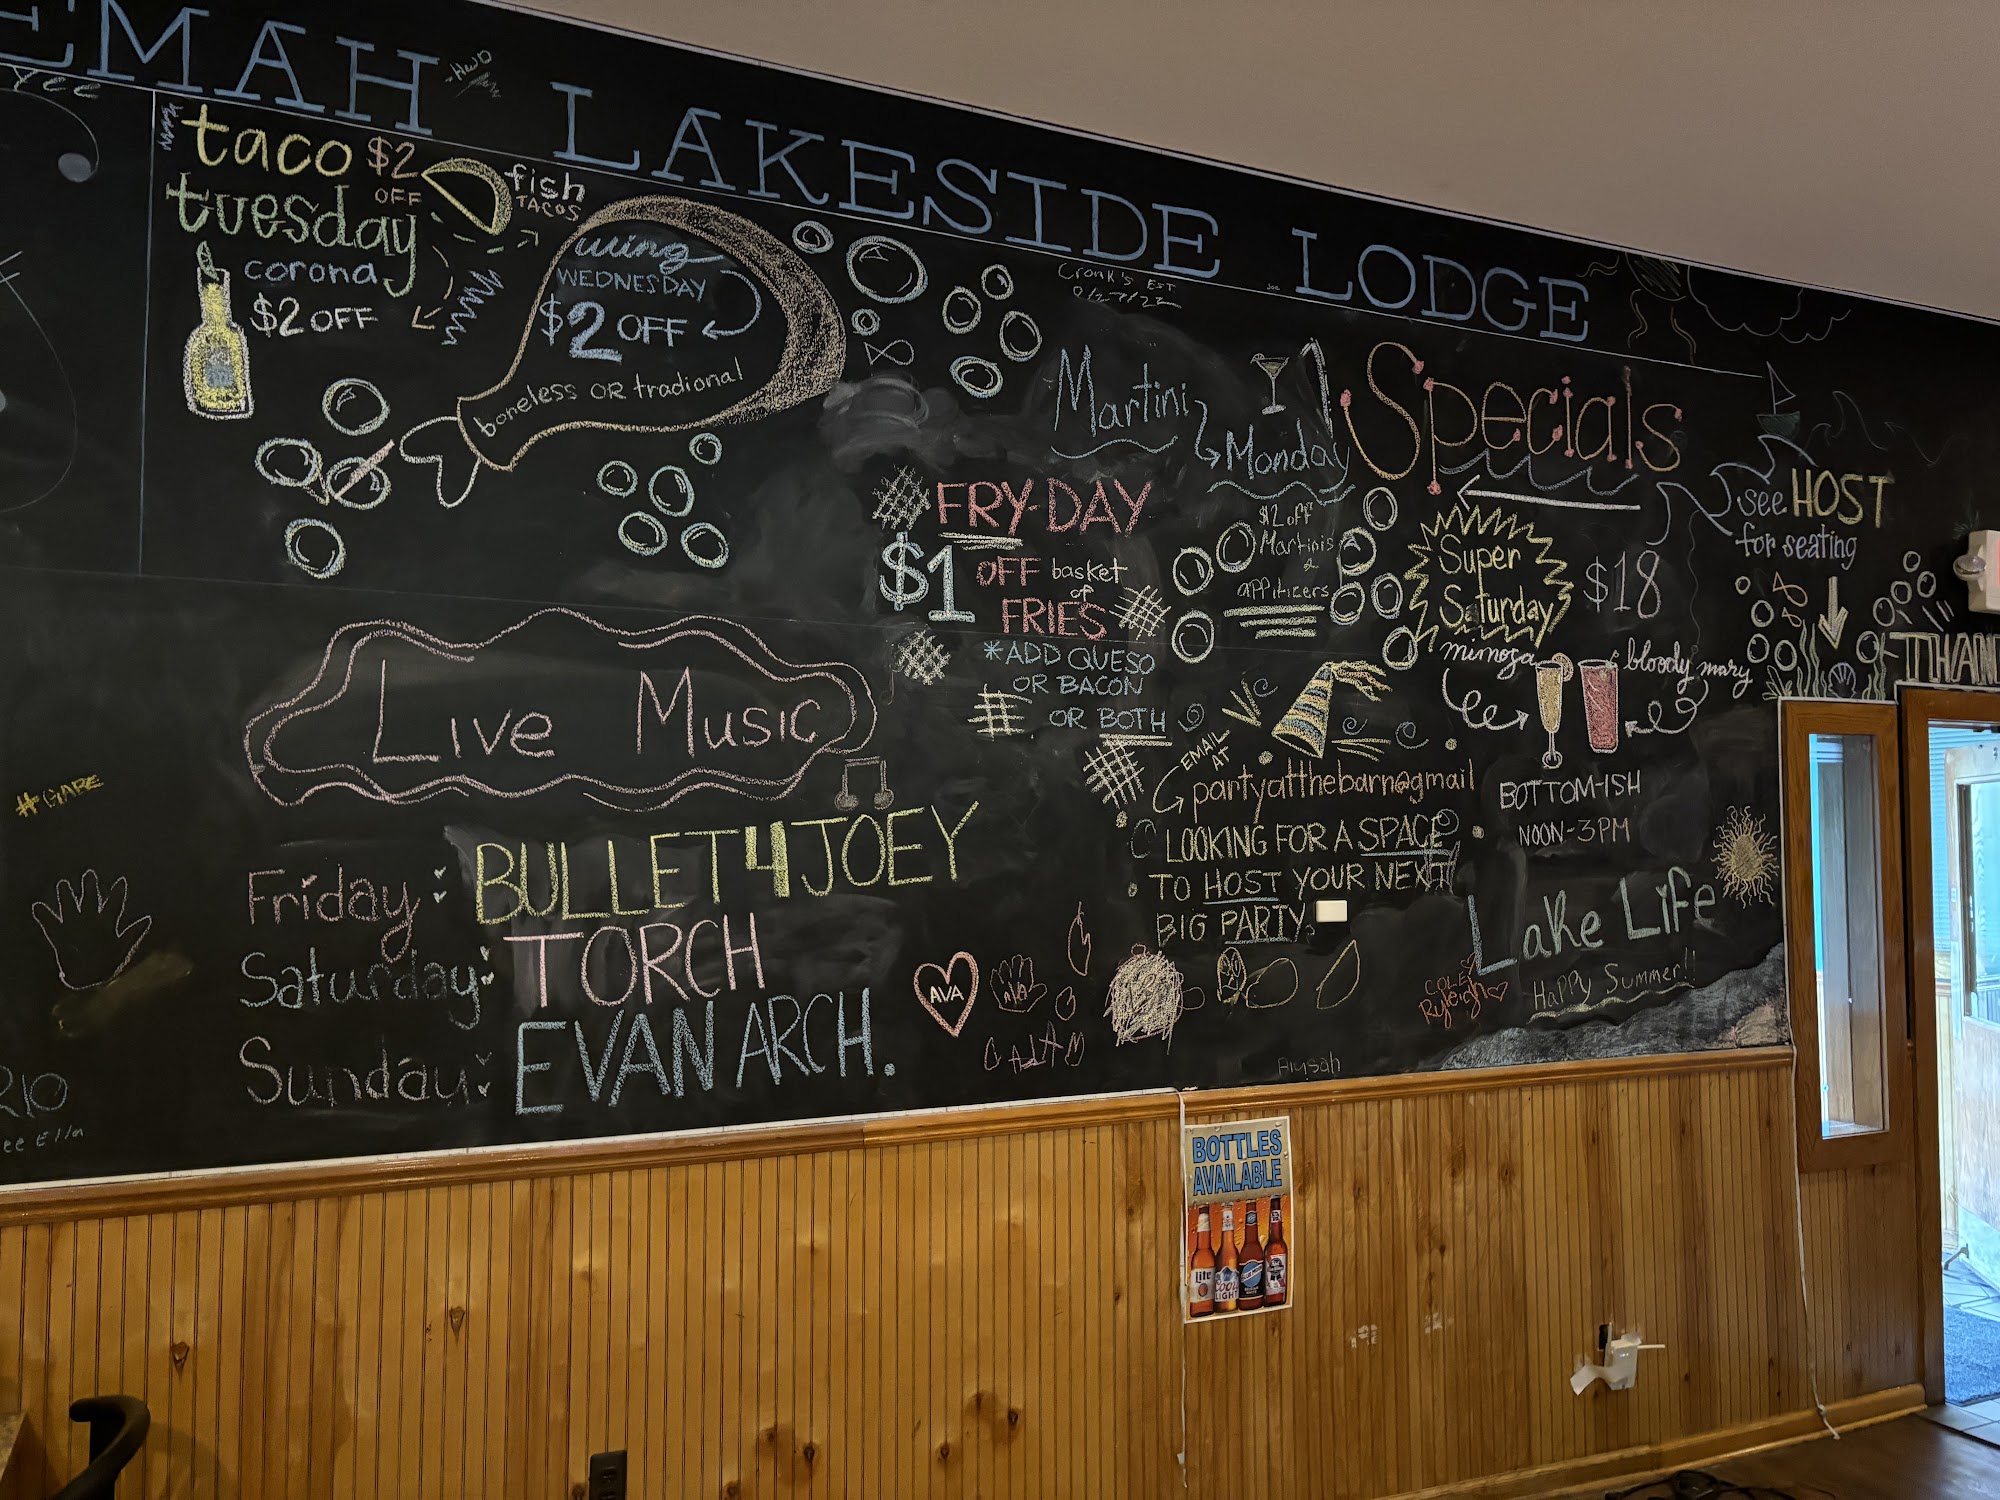 EMAH LAKESIDE LODGE
Yee
-HWD
taco $2 OFF
tuesday
fish
TACOS
corona
$2 OFF
wing
WEDNESDAY
$2 OFF
boneless OR tradional
Cronk's EST
Martini
Monday
$2 off
Martinis
&
appitizers
Specials
see HOST
for seating
THAN
FRY-DAY
$1 OFF basket
of
FRIES
*ADD QUESO
OR BACON
OR BOTH
Super
Saturday
$18
mimosa
bloody mary
BOTTOM-ISH
NOON-3PM
EMAIL
AT
partyatthebarn@gmail
LOOKING FOR A SPACE
TO HOST YOUR NEXT
BIG PARTY?
Live Music
Friday: BULLET4JOEY
Saturday: TORCH
Sunday: EVAN ARCH.
#GABE
RIO
ee Ella
AVA
AVA
COLE
Ryleigh
Lake Life
Happy Summer!!
BOTTLES
AVAILABLE
Lite
COORS
LIGHT
BLUE MOON